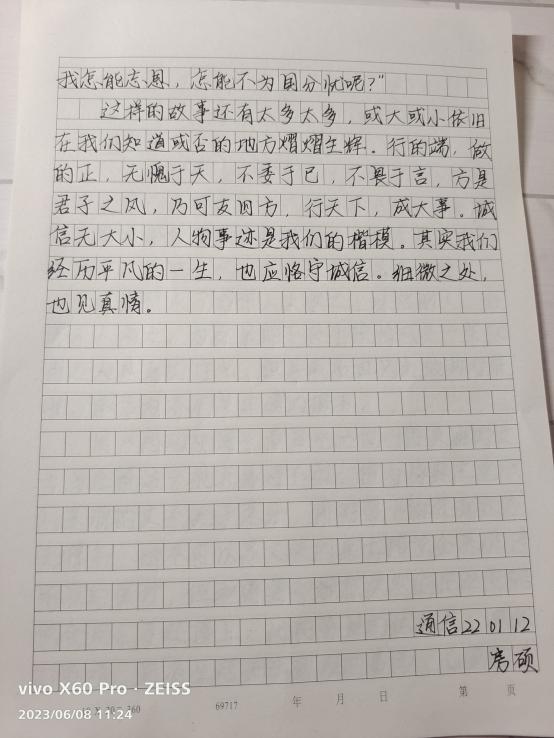 我怎能忘恩，怎能不为国分忧呢？"
这样的故事还有太多太多，或大或小依旧
在我们知道或否的地方熠熠生辉。行的端，做
的正，无愧于天，不委于己，不畏于言，方是
君子之风，乃可友四方，行天下，成大事。诚
信无大小，人物事迹是我们的楷模。其实我们
经历平凡的一生，也应恪守诚信。细微之处，
也见真情。
通信220112
房硕
vivo X60 Pro · ZEISS
2023/06/08 11:24
69717 年 月 日 第 页